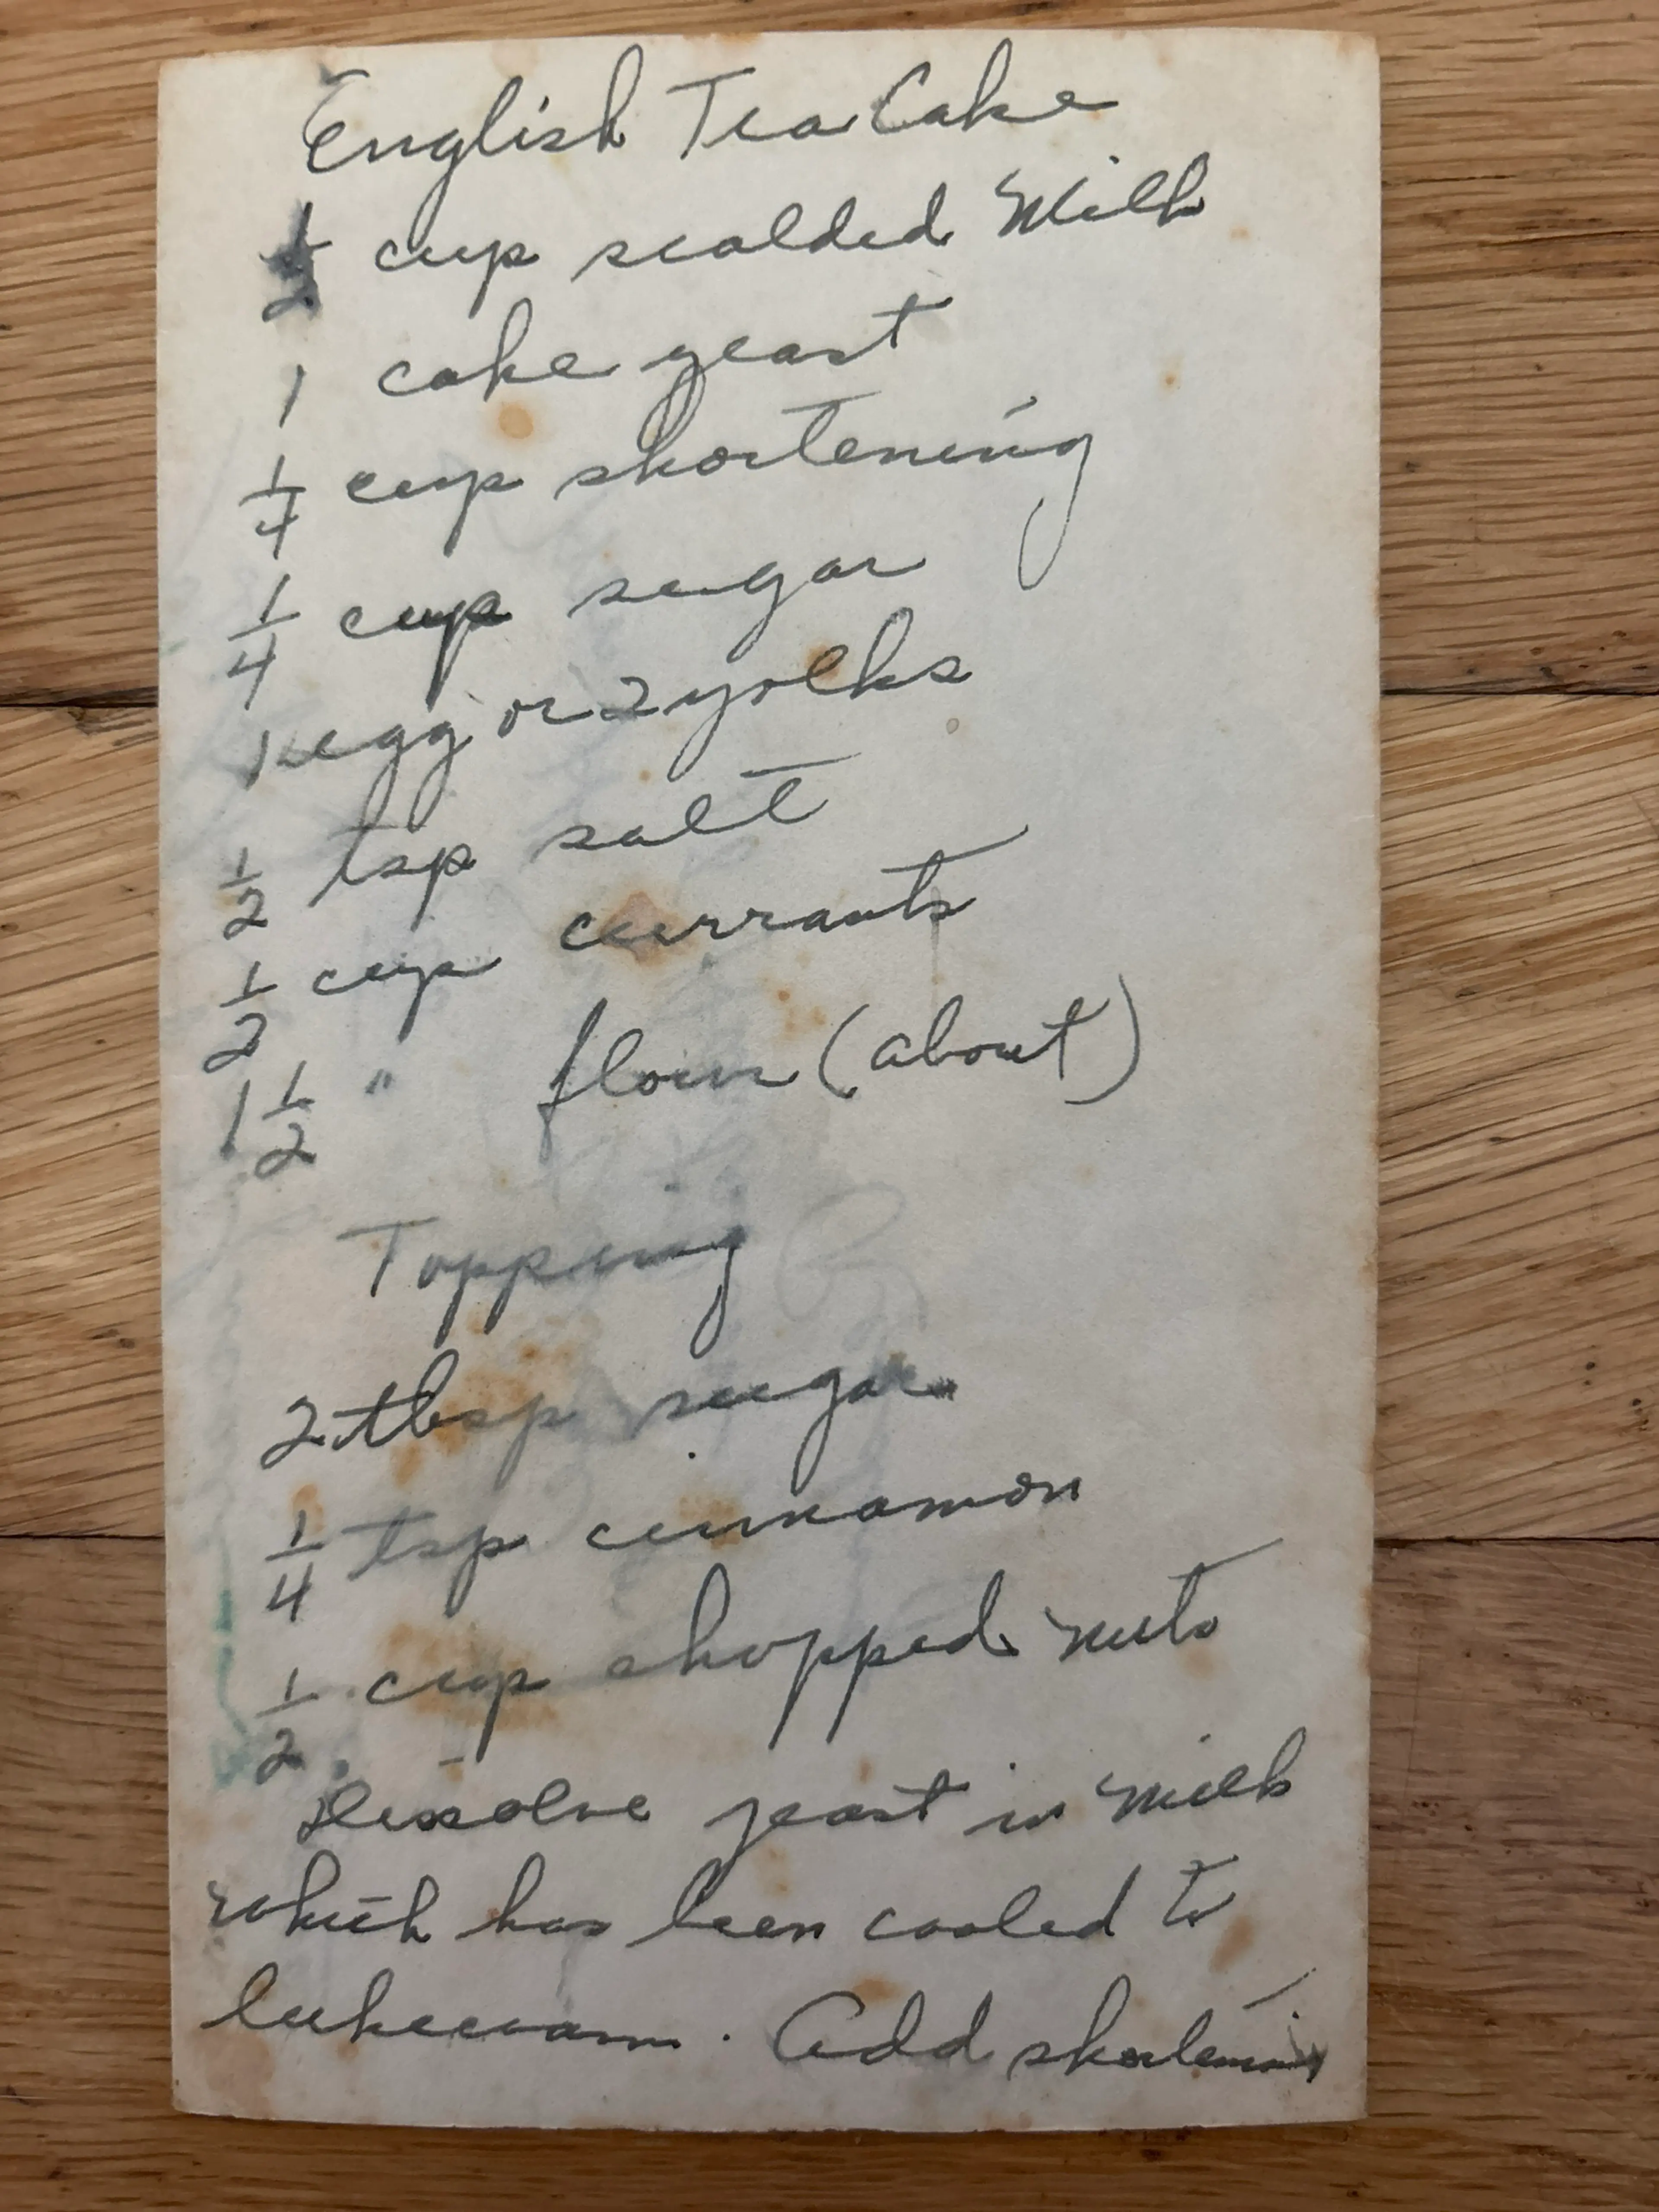 English Tea Cake
1/2 cup scalded Milk
1 cake yeast
1/4 cup shortening
1/4 cup sugar
1 egg or 2 yolks
1/2 tsp salt
1/2 cup currants
1 1/2 " flour (about)
Topping
2 tbsp sugar
1/4 tsp cinnamon
1/2 cup chopped nuts
Dissolve yeast in milk
which has been cooled to
lukewarm. Add shortening